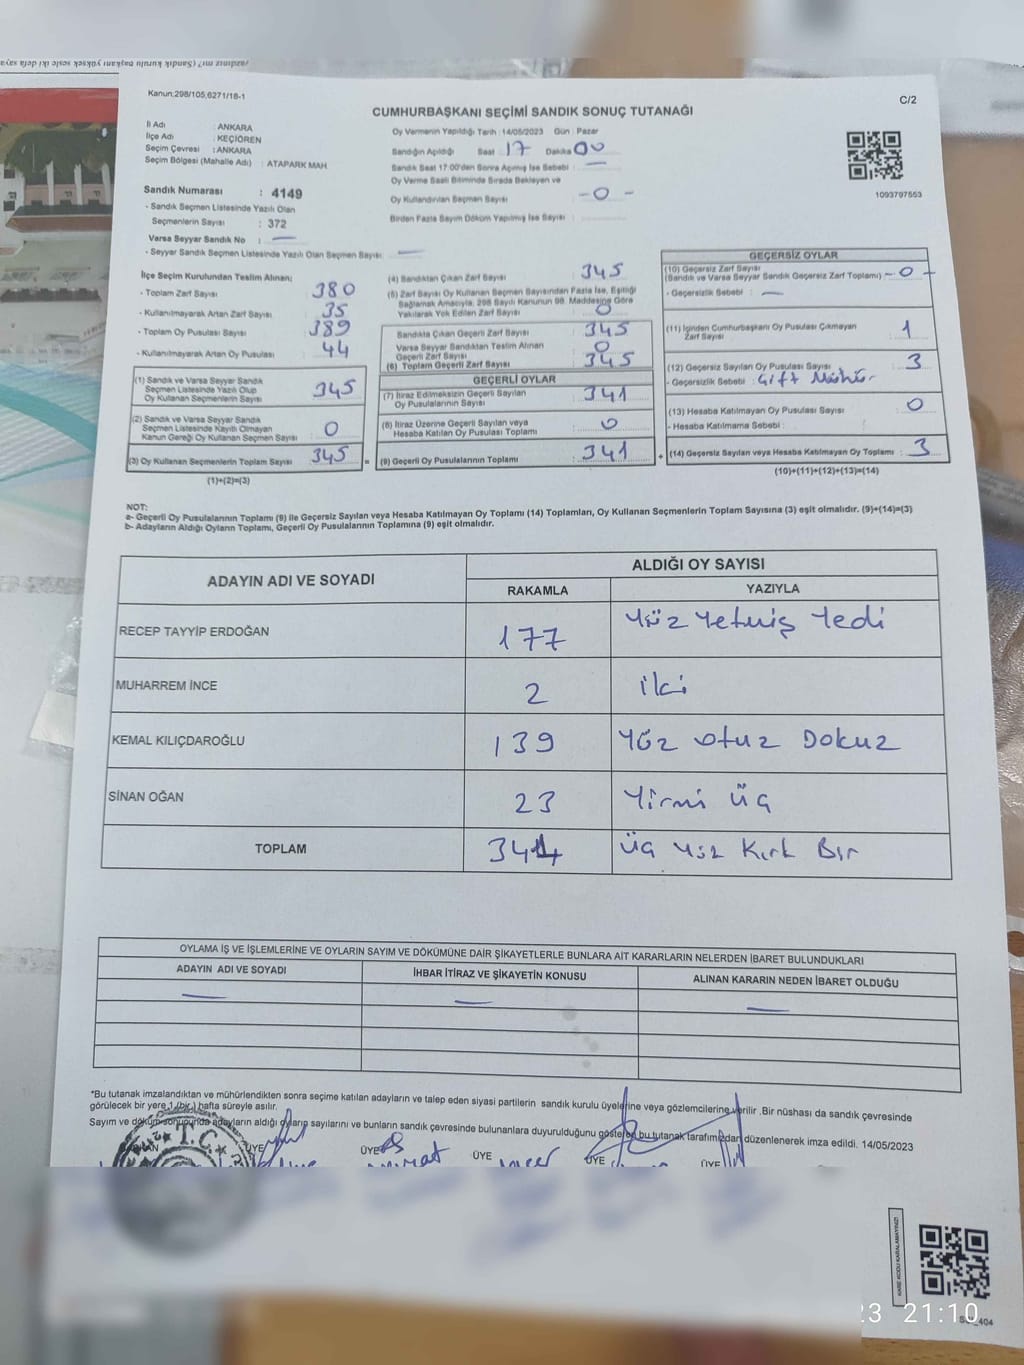 yazdınız mı? (Sandık kurulu başkanı yüksek sesle iki defa
Kanun:298/105,6271/18-1
C/2
CUMHURBAŞKANI SEÇİMİ SANDIK SONUÇ TUTANAĞI
İl Adı : ANKARA
İlçe Adı : KEÇİÖREN
Seçim Çevresi : ANKARA
Seçim Bölgesi (Mahalle Adı) : ATAPARK MAH
Oy Vermenin Yapıldığı Tarih : 14/05/2023 Gün : Pazar
Sandığın Açıldığı Saat : 17 Dakika 00
Sandık Saat 17:00'den Sonra Açılmış İse Sebebi : —
Oy Verme Saati Bitiminde Sırada Bekleyen ve
Oy Kullandırılan Seçmen Sayısı - 0 -
Birden Fazla Sayım Döküm Yapılmış İse Sayısı :
1093797553
Sandık Numarası : 4149
- Sandık Seçmen Listesinde Yazılı Olan
Seçmenlerin Sayısı : 372
Varsa Seyyar Sandık No : —
- Seyyar Sandık Seçmen Listesinde Yazılı Olan Seçmen Sayısı : —
İlçe Seçim Kurulundan Teslim Alınan;
- Toplam Zarf Sayısı 380
- Kullanılmayarak Artan Zarf Sayısı : 35
- Toplam Oy Pusulası Sayısı : 389
- Kullanılmayarak Artan Oy Pusulası : 44
(1) Sandık ve Varsa Seyyar Sandık
Seçmen Listesinde Yazılı Olup
Oy Kullanan Seçmenlerin Sayısı : 345
(2) Sandık ve Varsa Seyyar Sandık
Seçmen Listesinde Kayıtlı Olmayan
Kanun Gereği Oy Kullanan Seçmen Sayısı : 0
(3) Oy Kullanan Seçmenlerin Toplam Sayısı : 345
(1)+(2)=(3)
(4) Sandıktan Çıkan Zarf Sayısı : 345
(5) Zarf Sayısı Oy Kullanan Seçmen Sayısından Fazla İse, Eşitliği
Sağlamak Amacıyla; 298 Sayılı Kanunun 98. Maddesine Göre
Yakılarak Yok Edilen Zarf Sayısı : 0
Sandıkta Çıkan Geçerli Zarf Sayısı : 345
Varsa Seyyar Sandıktan Teslim Alınan
Geçerli Zarf Sayısı : 0
(6) Toplam Geçerli Zarf Sayısı : 345
GEÇERLİ OYLAR
(7) İtiraz Edilmeksizin Geçerli Sayılan
Oy Pusulalarının Sayısı : 341
(8) İtiraz Üzerine Geçerli Sayılan veya
Hesaba Katılan Oy Pusulası Toplamı : 0
= (9) Geçerli Oy Pusulalarının Toplamı : 341
GEÇERSİZ OYLAR
(10) Geçersiz Zarf Sayısı
(Sandık ve Varsa Seyyar Sandık Geçersiz Zarf Toplamı) - 0 -
- Geçersizlik Sebebi : —
(11) İçinden Cumhurbaşkanı Oy Pusulası Çıkmayan
Zarf Sayısı : 1
(12) Geçersiz Sayılan Oy Pusulası Sayısı : 3
- Geçersizlik Sebebi : Çift Mühür
(13) Hesaba Katılmayan Oy Pusulası Sayısı : 0
- Hesaba Katılmama Sebebi :
+ (14) Geçersiz Sayılan veya Hesaba Katılmayan Oy Toplamı : 3
(10)+(11)+(12)+(13)=(14)
NOT:
a- Geçerli Oy Pusulalarının Toplamı (9) ile Geçersiz Sayılan veya Hesaba Katılmayan Oy Toplamı (14) Toplamları, Oy Kullanan Seçmenlerin Toplam Sayısına (3) eşit olmalıdır. (9)+(14)=(3)
b- Adayların Aldığı Oyların Toplamı, Geçerli Oy Pusulalarının Toplamına (9) eşit olmalıdır.
ADAYIN ADI VE SOYADI
ALDIĞI OY SAYISI
RAKAMLA YAZIYLA
RECEP TAYYİP ERDOĞAN 177 Yüz Yetmiş Yedi
MUHARREM İNCE 2 iki
KEMAL KILIÇDAROĞLU 139 Yüz otuz Dokuz
SİNAN OĞAN 23 Yirmi üç
TOPLAM 341 üç yüz Kırk Bir
OYLAMA İŞ VE İŞLEMLERİNE VE OYLARIN SAYIM VE DÖKÜMÜNE DAİR ŞİKAYETLERLE BUNLARA AİT KARARLARIN NELERDEN İBARET BULUNDUKLARI
ADAYIN ADI VE SOYADI İHBAR İTİRAZ VE ŞİKAYETİN KONUSU ALINAN KARARIN NEDEN İBARET OLDUĞU
— — —
*Bu tutanak imzalandıktan ve mühürlendikten sonra seçime katılan adayların ve talep eden siyasi partilerin sandık kurulu üyelerine veya gözlemcilerine verilir .Bir nüshası da sandık çevresinde
görülecek bir yere 1 (bir) hafta süreyle asılır.
Sayım ve döküm sonucunda adayların aldığı oyların sayılarını ve bunların sandık çevresinde bulunanlara duyurulduğunu gösteren bu tutanak tarafımızdan düzenlenerek imza edildi. 14/05/2023
T.C.
ÜYE ÜYE ÜYE ÜYE ÜYE
KARE KODU KARALAMAYINIZ!
23 21:10
404